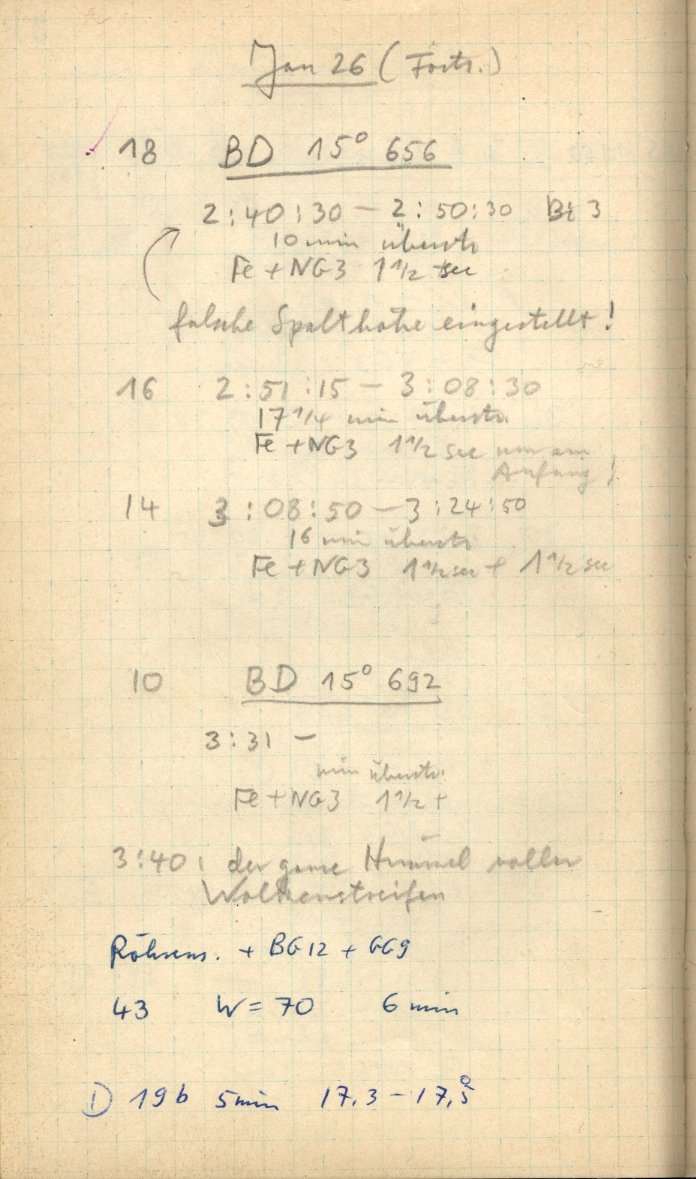 Jan 26 (Forts.)
18 BD 15° 656
2:40:30 – 2:50:30 Bt 3
10 min überstr.
Fe + NG3 1 1/2 sec
falsche Spalthöhe eingestellt!
16 2:51:15 – 3:08:30
17 1/4 min überstr.
Fe + NG3 1 1/2 sec nur am
Anfang!
14 3:08:50 – 3:24:50
16 min überstr.
Fe + NG3 1 1/2 sec + 1 1/2 sec
10 BD 15° 692
3:31 –
min überstr.
Fe + NG3 1 1/2 +
3:40: der ganze Himmel voller
Wolkenstreifen
+ BG12 + GG9
43 W = 70 6 min
D 19b 5min 17,3 – 17,5°